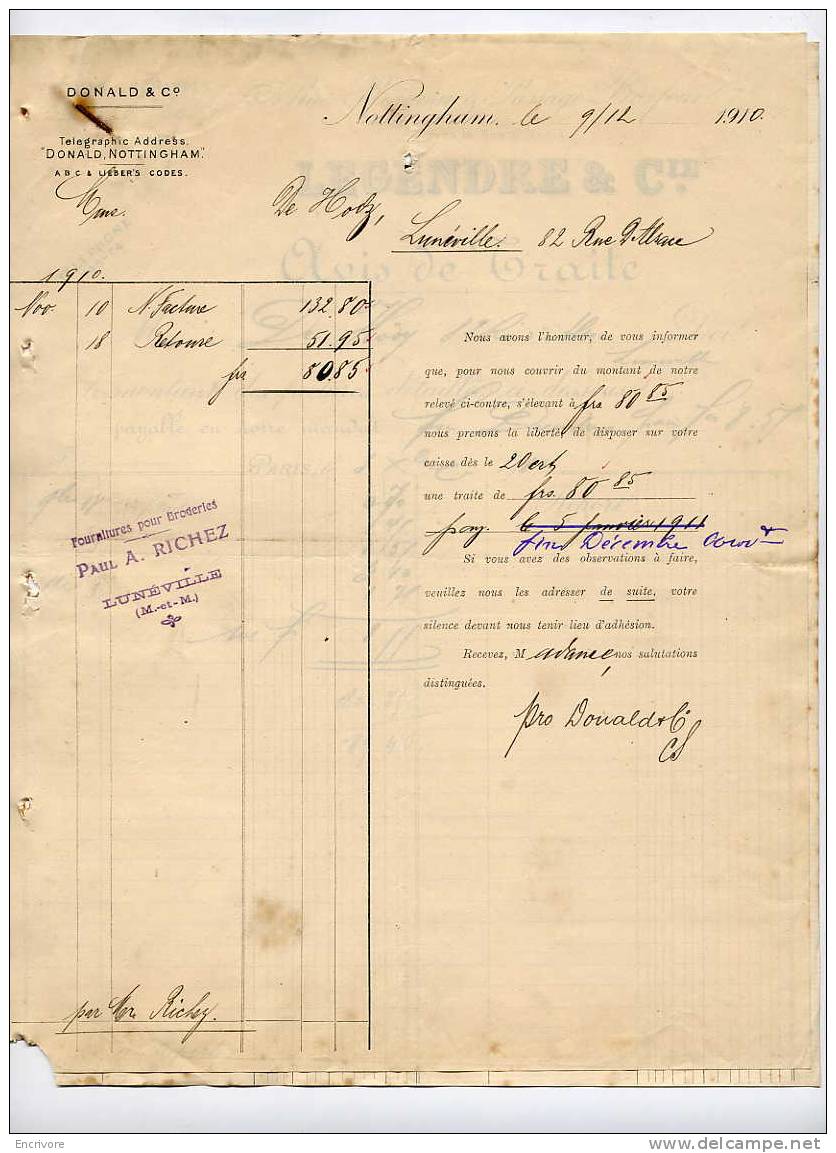 DONALD & Co
Telegraphic Address.
"DONALD, NOTTINGHAM."
A B C & LIEBER'S CODES.
Nottingham, le 9/12 1910.
De Hody,
Lunéville. 82 Rue D'Alsace
1910.
Nov. 10 N. Facture 132.80
18 Retour 51.95
frs 80.85
Nous avons l'honneur, de vous informer
que, pour nous couvrir du montant de notre
relevé ci-contre, s'élevant à frs 80 85
nous prenons la liberté, de disposer sur votre
caisse dès le 20 crt
une traite de frs. 80 85
pay. le 5 janvier 1911
fin Décembre Cour t
Si vous avez des observations à faire,
veuillez nous les adresser de suite, votre
silence devant nous tenir lieu d'adhésion.
Recevez, Madame, nos salutations
distinguées.
pro Donald & Co
CS
Fournitures pour Broderies
PAUL A. RICHEZ
LUNÉVILLE
(M.-et-M.)
par Mr. Richez.
LEGENDRE & CIE
Avis de Traite
payable en notre mandat
PARIS, le
Encrivore
www.delcampe.net